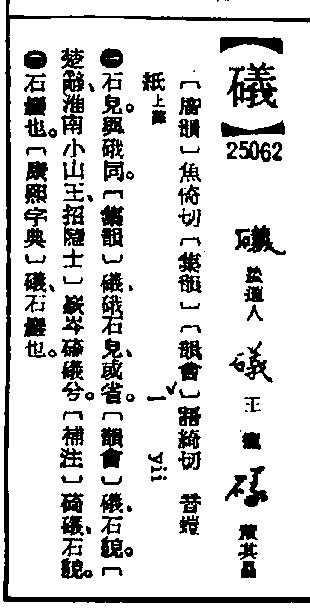 【礒】
25062
礒 松道人
礒 王寵
礒 董其昌
〔廣韻〕魚倚切〔集韻〕〔韻會〕語綺切 音螘
紙上聲 ㄧˇ yii
㊀石皃。與硪同。〔集韻〕礒、硪石皃、或省。〔韻會〕礒、石貌。〔
楚辭、淮南小山王、招隱士〕嶔岑碕礒兮。〔補注〕碕礒、石貌。
㊁石巖也。〔康熙字典〕礒、石巖也。